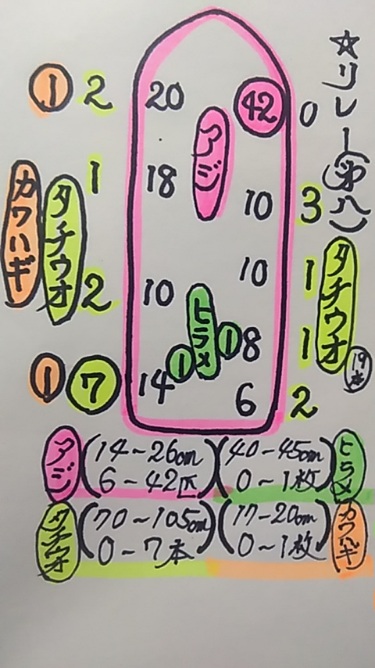 ☆リレー(第八)
① 2 20 ㊷ 0
アジ
1 18 10 3
カワハギ タチウオ タチウオ
10 1
2 10 ヒラメ
① ① 8 1
19本
① ⑦ 14 6 2
アジ (14~26cm 6~42匹) (40~45cm 0~1枚) ヒラメ
タチウオ (70~105cm 0~7本) (17~20cm 0~1枚) カワハギ